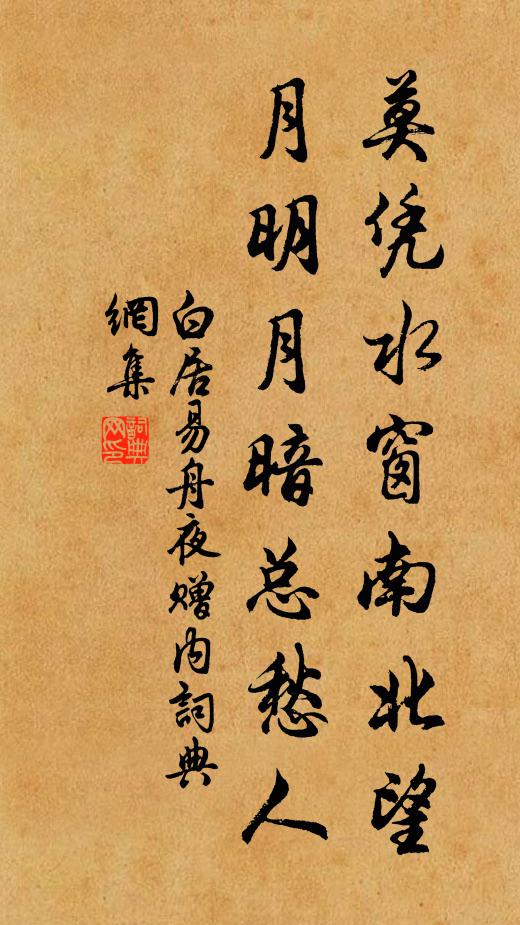 莫凭水窗南北望
月明月暗总愁人
白居易舟夜赠内詞典
網集
詞典网印